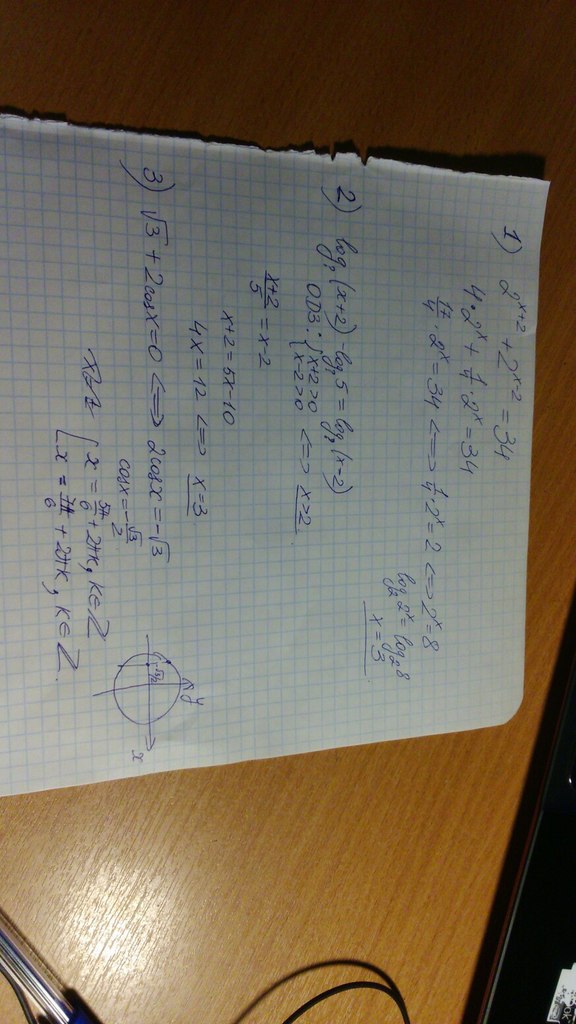 1) 2^{x+2} + 2^{x-2} = 34
4 · 2^x + 1/4 · 2^x = 34
17/4 · 2^x = 34 <=> 1/4 · 2^x = 2 <=> 2^x = 8
log₂ 2^x = log₂ 8
x = 3
2) log (x+2) - log 5 = log (x-2)
ОДЗ: { x+2>0
x-2>0 <=> x>2
(x+2)/5 = x-2
x+2 = 5x-10
4x = 12 <=> x=3
3) √3 + 2cosx = 0 <=> 2cosx = -√3
cosx = -√3/2
[ x = 5π/6 + 2πk, k∈Z
x = 7π/6 + 2πk, k∈Z
y
x